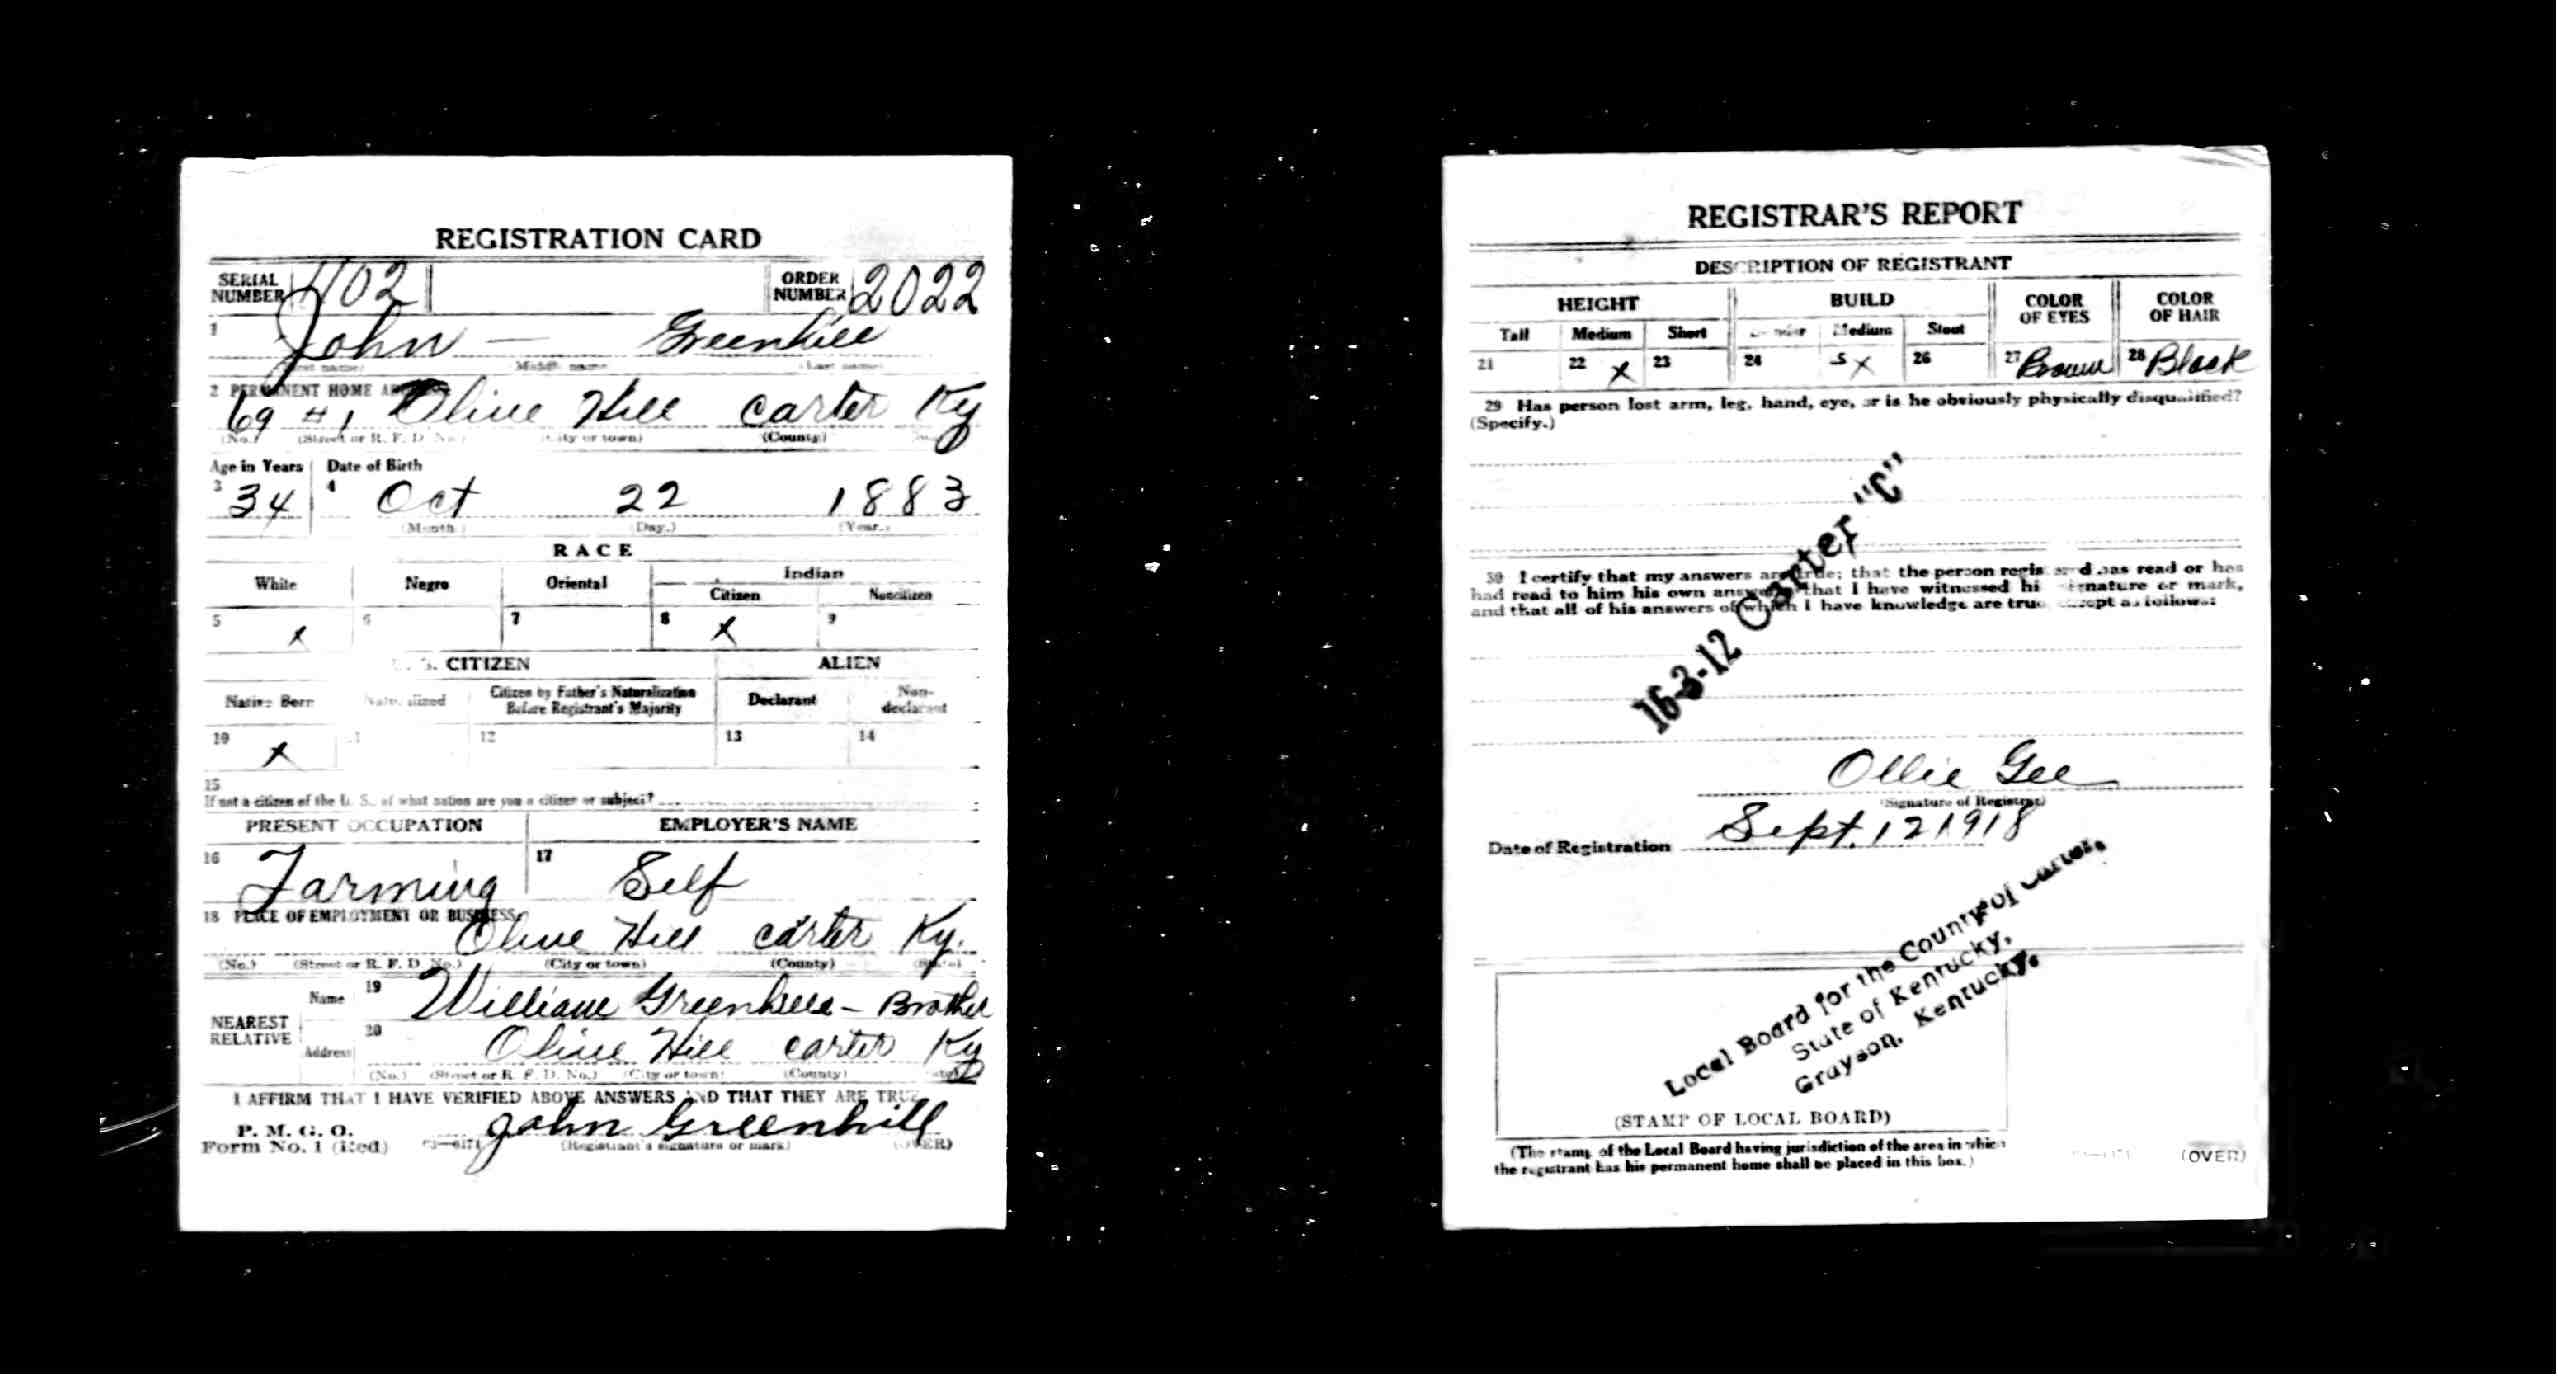 REGISTRATION CARD
SERIAL NUMBER 1102 ORDER NUMBER 2022
1 John — Greenhill
(First name) (Middle name) (Last name)
2 PERMANENT HOME ADDRESS
69 #1 Olive Hill Carter Ky
(No.) (Street or R. F. D. No.) (City or town) (County)
Age in Years Date of Birth
3 34 4 Oct 22 1883
(Month.) (Day.) (Year.)
RACE
White Negro Oriental Indian
Citizen Noncitizen
5 x 6 7 8 x 9
U. S. CITIZEN ALIEN
Native Born Naturalized Citizen by Father's Naturalization Before Registrant's Majority Declarant Non-declarant
10 x 11 12 13 14
15
If not a citizen of the U. S., of what nation are you a citizen or subject?
PRESENT OCCUPATION EMPLOYER'S NAME
16 Farming 17 Self
18 PLACE OF EMPLOYMENT OR BUSINESS
Olive Hill Carter Ky.
(No.) (Street or R. F. D. No.) (City or town) (County) (State)
NEAREST RELATIVE
Name 19 William Greenhill – Brother
Address 20 Olive Hill Carter Ky
(No.) (Street or R. F. D. No.) (City or town) (County) (State)
I AFFIRM THAT I HAVE VERIFIED ABOVE ANSWERS AND THAT THEY ARE TRUE
P. M. G. O.
Form No. 1 (Red) John Greenhill
(Registrant's signature or mark) (OVER)
REGISTRAR'S REPORT
DESCRIPTION OF REGISTRANT
HEIGHT BUILD COLOR OF EYES COLOR OF HAIR
Tall Medium Short Slender Medium Stout
21 22 x 23 24 25 x 26 27 Brown 28 Black
29 Has person lost arm, leg, hand, eye, or is he obviously physically disqualified?
(Specify.)
30 I certify that my answers are true; that the person registered has read or has
had read to him his own answers; that I have witnessed his signature or mark,
and that all of his answers of which I have knowledge are true, except as follows:
16-3-12 Carter "C"
Ollie Gee
(Signature of Registrar)
Date of Registration Sept. 12 1918
Local Board for the County of Carter,
State of Kentucky,
Grayson, Kentucky.
(STAMP OF LOCAL BOARD)
(The stamp of the Local Board having jurisdiction of the area in which
the registrant has his permanent home shall be placed in this box.)
(OVER)